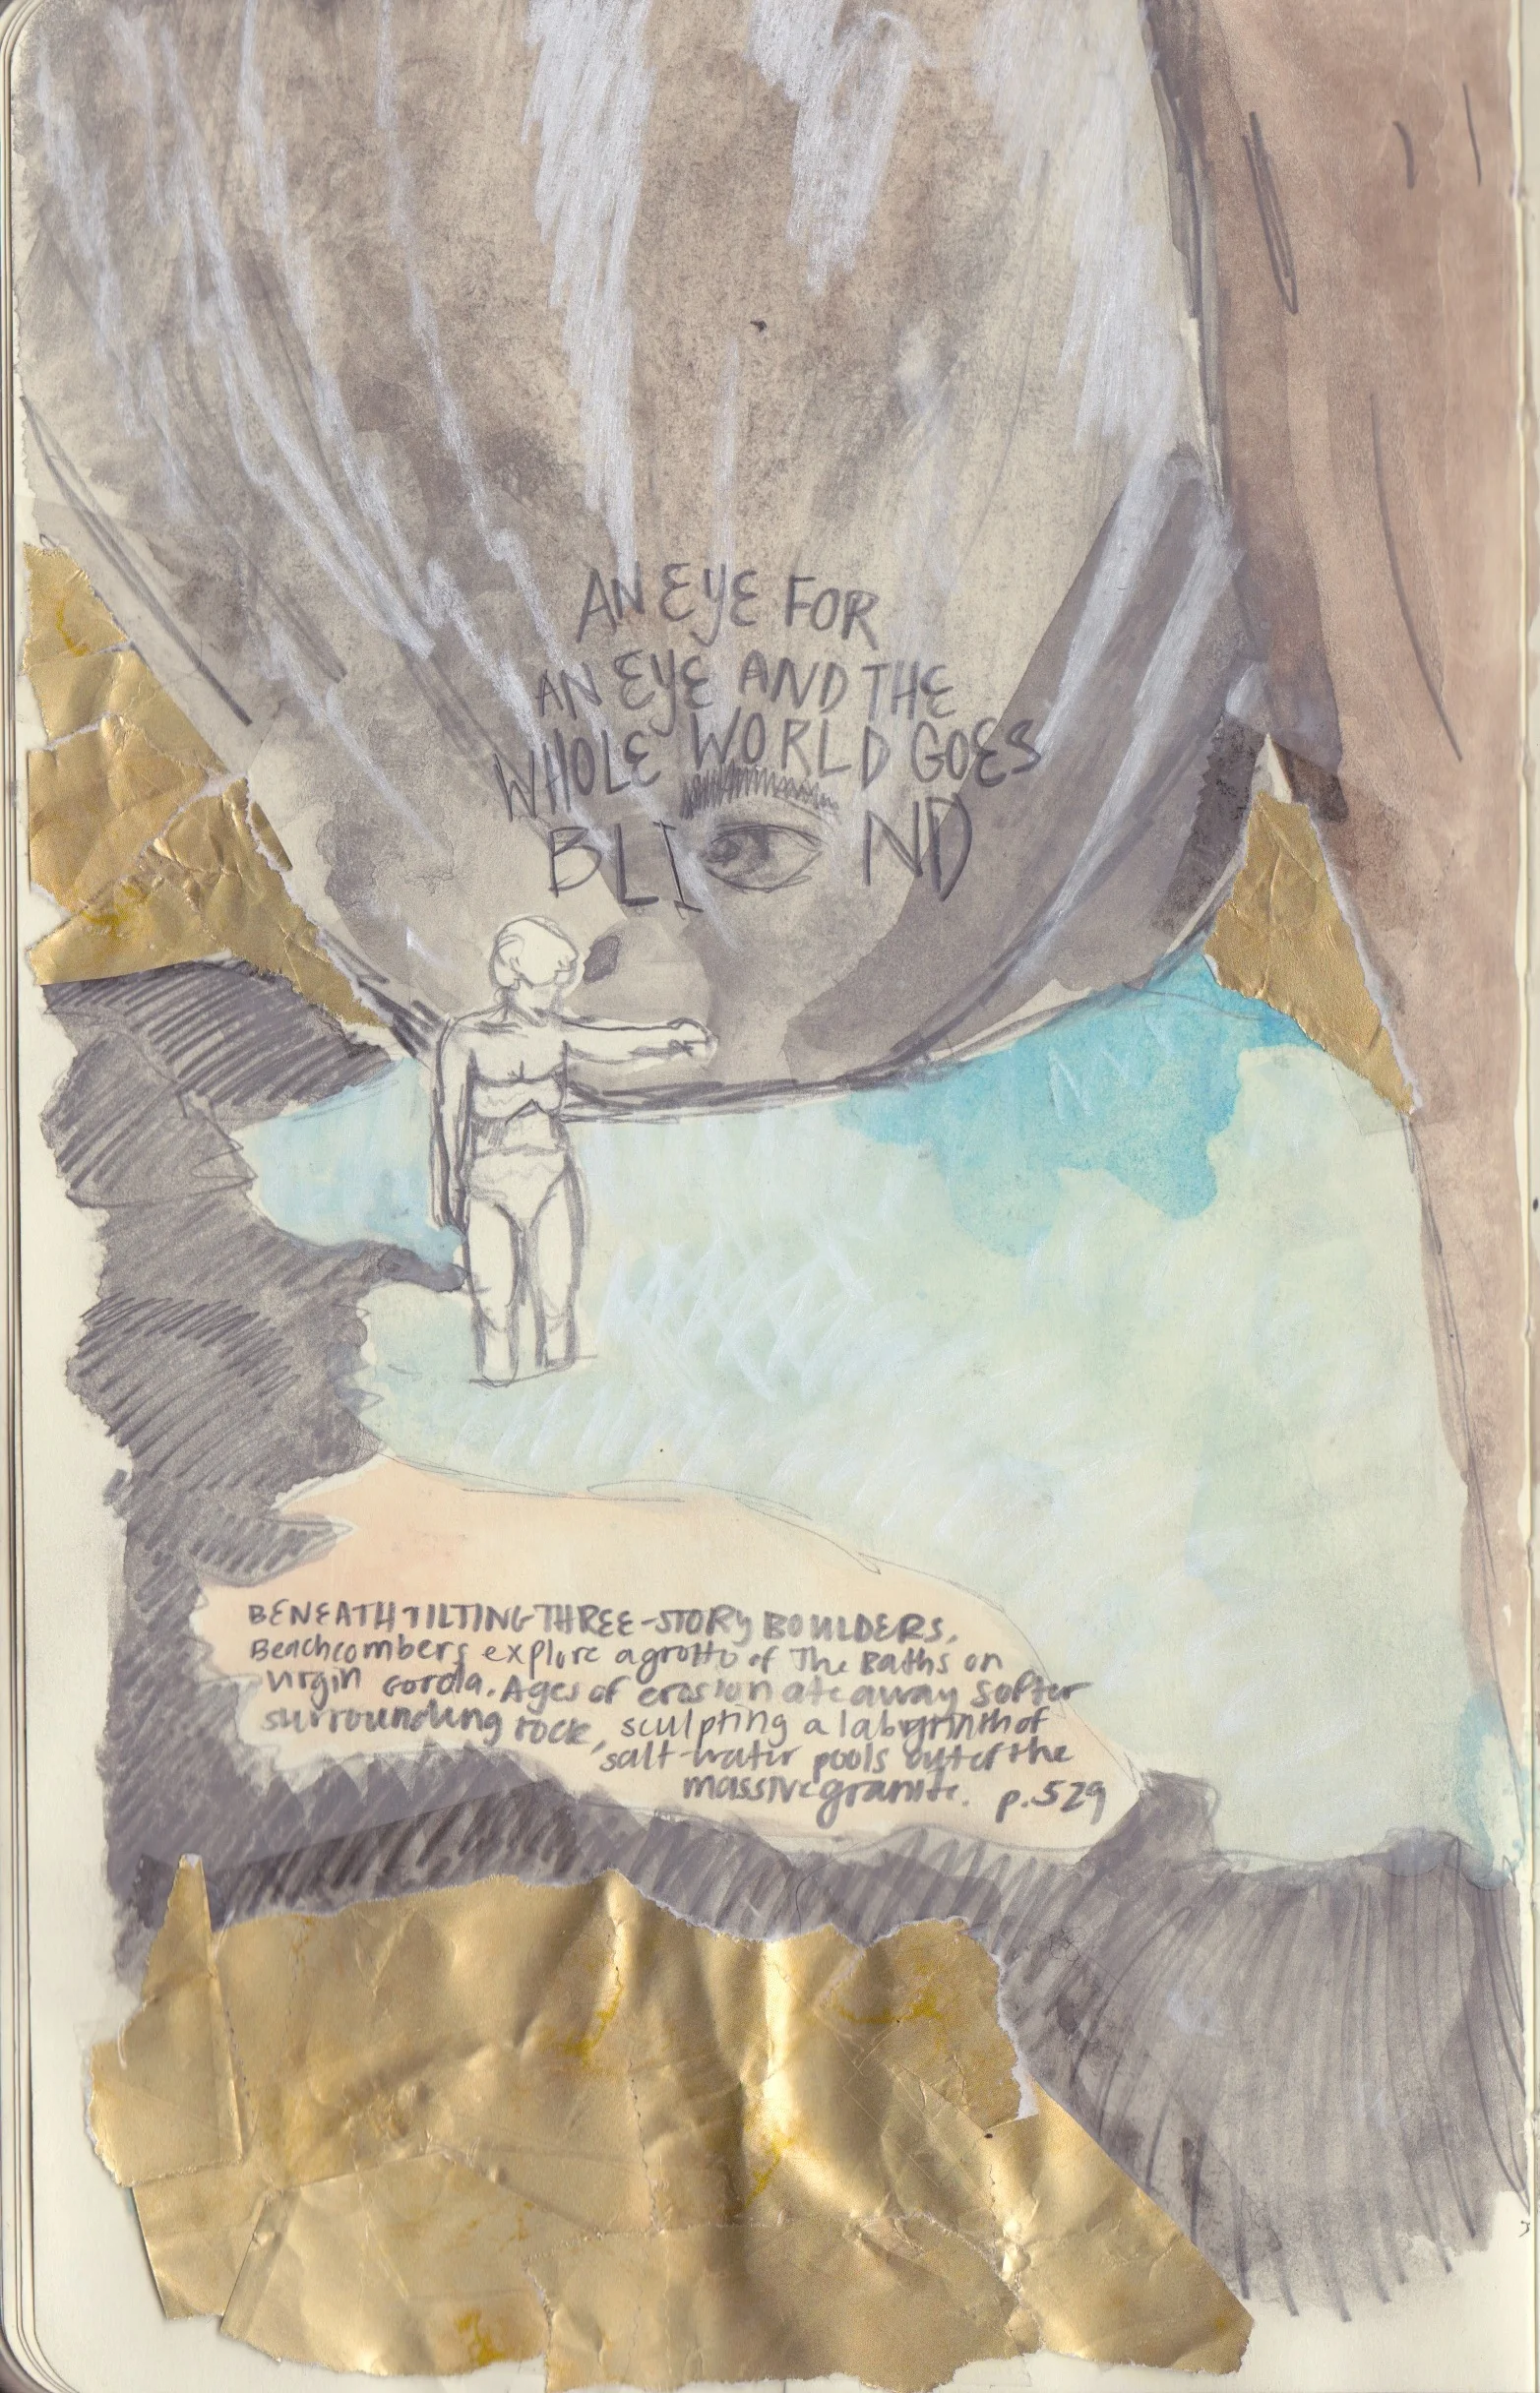 AN EYE FOR
AN EYE AND THE
WHOLE WORLD GOES
BLIND
BENEATH TILTING THREE-STORY BOULDERS,
Beachcombers explore a grotto of The Baths on
virgin Gorda. Ages of erosion ate away softer
surrounding rock, sculpting a labyrinth of
salt-water pools out of the
massive granite. p.529